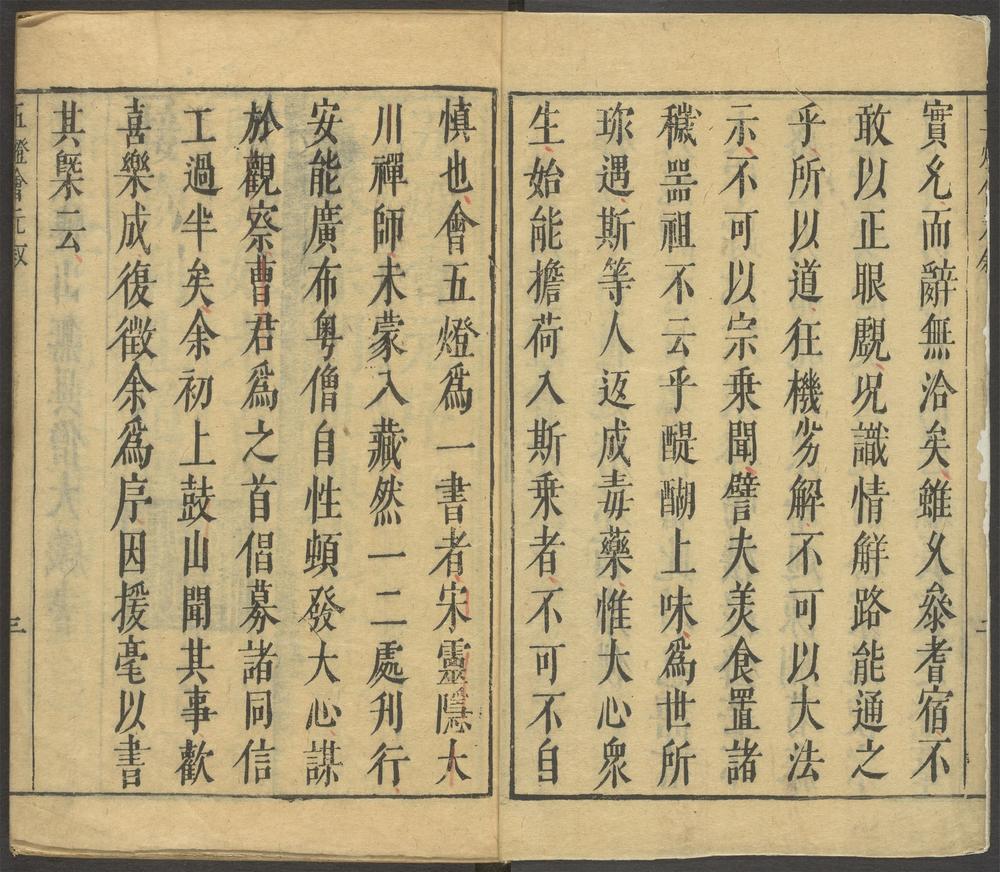 實尣而辭無洽矣雖久叅耆宿不
敢以正眼覷況識情解路能通之
乎所以道狂機劣解不可以大法
示不可以宗乗聞譬夫美食置諸
穢噐祖不云乎醍醐上味爲世所
珎遇斯等人返成毒藥惟大心衆
生始能擔荷入斯乗者不可不自
慎也會五燈爲一書者宋靈隱大
川禪師未蒙入藏然一二處刋行
安能廣布粤僧自性頓發大心謀
於觀察曹君爲之首倡募諸同信
工過半矣余初上鼓山聞其事歡
喜樂成復徵余爲序因援毫以書
其槩云
五燈會元叙
三